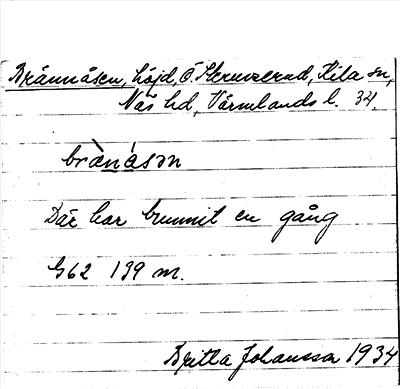 Brännåsen, höjd, Ö. Stenserud, Kila sn,
Näs hd, Värmlands l. 34.
brànásən
Där har brunnit en gång
G62 139 m.
Britta Johansson 1934